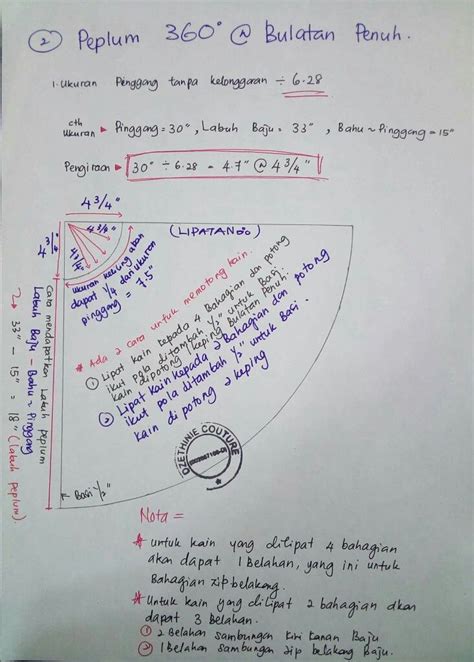 ② Peplum 360° @ Bulatan Penuh.
1. Ukuran Pinggang tanpa kelonggaran ÷ 6.28
cth
ukuran ► Pinggang = 30", Labuh Baju = 33", Bahu ~ Pinggang = 15"
Pengiraan ► 30" ÷ 6.28 = 4.7" @ 4 3/4"
4 3/4"
4 3/4"
4 3/4"
(LIPATAN)
ukuran keliling akan
dapat 1/4 dari ukuran
pinggang = 7.5"
Cara mendapatkan Labuh peplum
Labuh Baju - Bahu ~ Pinggang
↳ 33" - 15" = 18" (labuh peplum)
* Ada 2 cara untuk memotong kain.
① Lipat kain kepada 4 Bahagian dan potong
ikut pola ditambah 1/2" untuk Basi
kain dipotong 1 keping Bulatan Penuh.
② Lipat kain kepada 2 Bahagian dan potong
ikut pola ditambah 1/2" untuk Basi.
kain di potong 2 keping
DZETHINIE COUTURE
Basi 1/2"
Nota =
* untuk kain yang dilipat 4 bahagian
akan dapat 1 Belahan, yang ini untuk
Bahagian zip belakang.
* Untuk kain yang dilipat 2 bahagian akan
dapat 3 Belahan.
① 2 Belahan sambungan kiri kanan Baju
② 1 Belahan sambungan zip belakang Baju.